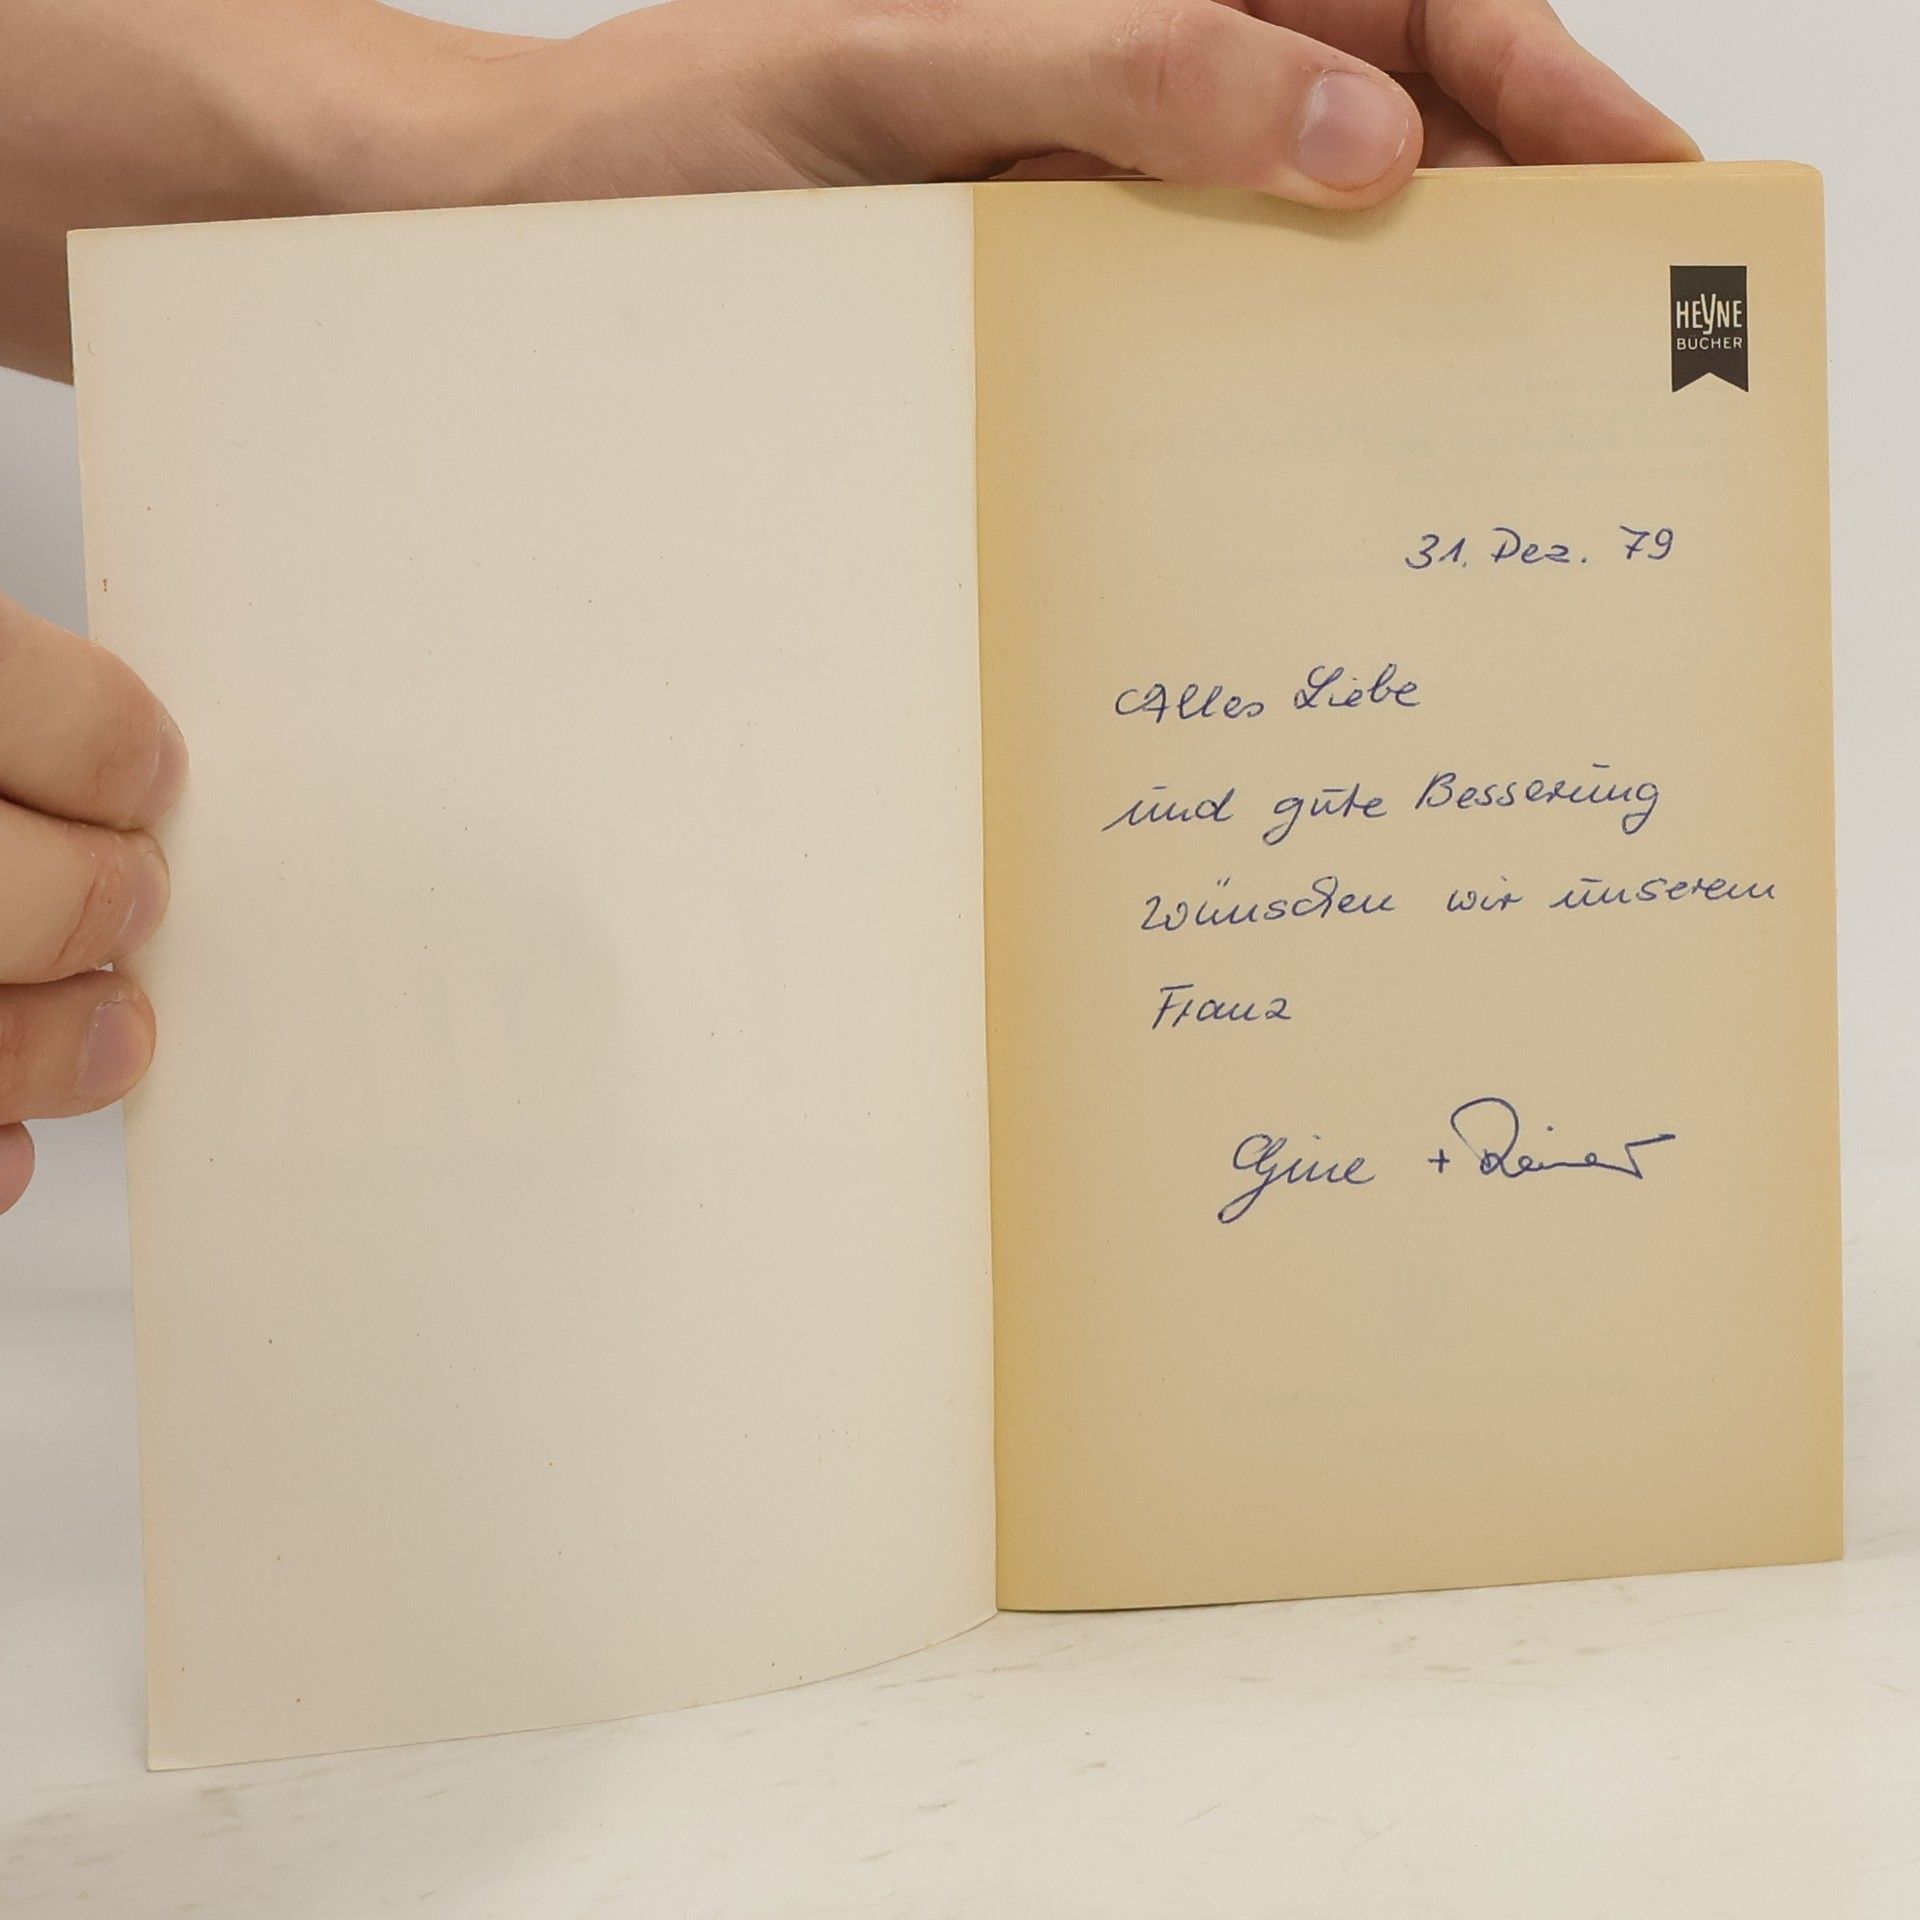 HEYNE
BÜCHER
31. Dez. 79
Alles Liebe
und gute Besserung
wünschen wir unserem
Franz
Gine + Reiner